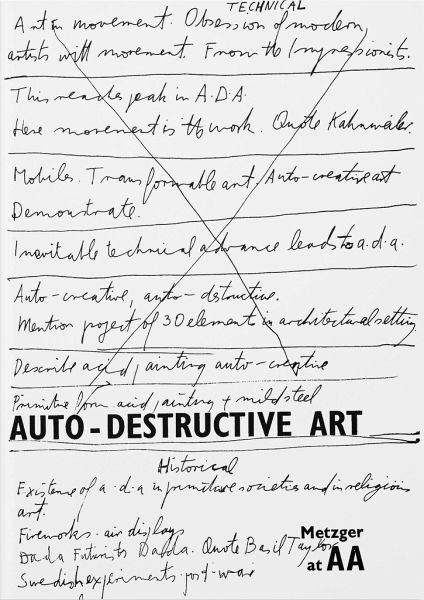 TECHNICAL
Art in movement. Obsession of modern
artists with movement. From the Impressionists.
This reaches peak in A.D.A.
Here movement is the work. Quote Kahnweiler.
Mobiles. Transformable art. Auto-creative art
Demonstrate.
Inevitable technical advance leads to a.d.a.
Auto-creative, auto-destructive.
Mention project of 30 element in architectural setting
Describe acid painting auto-creative
Primitive form acid painting + mild steel
AUTO-DESTRUCTIVE ART
Historical
Existence of a.d.a in primitive societies and in religious
art.
Fireworks. air displays
Dada Futurists Dada. Quote Basil Taylor
Metzger
at AA
Swedish experiments post-war